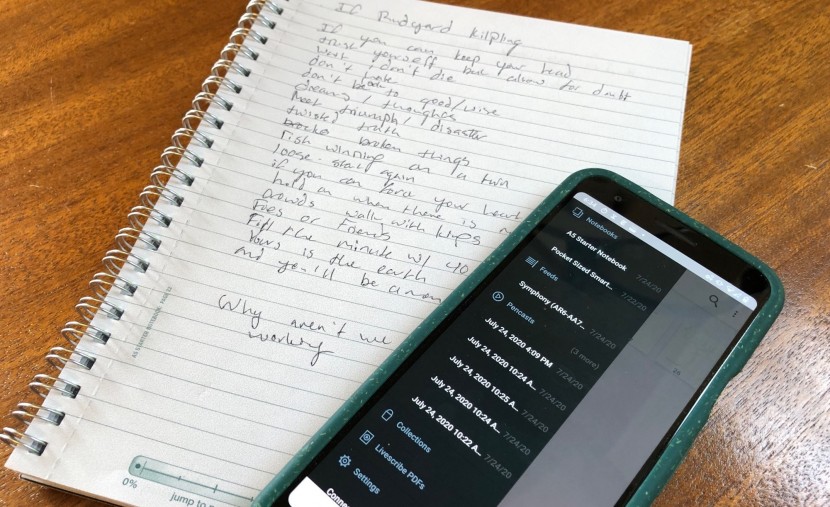 If Rudyard Kilpling
If you can keep your head
trust yourself but allow for doubt
don't / don't die
don't look to good/wise
dreams / thoughts
Meet triumph / disaster
twisted truth
broken things
winning on a turn
loose. start again
if you can force your heart
hold on when there is
Crowds walk with kings
Foes or Friends
Fill the minute w/ 40
Yours is the earth
And you'll be a man
Why aren't we
working
A5 STARTER NOTEBOOK
0%
jump to
Notebooks
A5 Starter Notebook 7/24/20
Pocket Sized Smart... 7/22/20
Feeds
Symphony (AR6-AA7... 7/24/20
Pencasts
(3 more)
July 24, 2020 4:09 PM 7/24/20
July 24, 2020 10:24 A... 7/24/20
July 24, 2020 10:25 A... 7/24/20
July 24, 2020 10:24 A... 7/24/20
July 24, 2020 10:22 A... 7/24/20
Collections
Livescribe PDFs
Settings
Conne